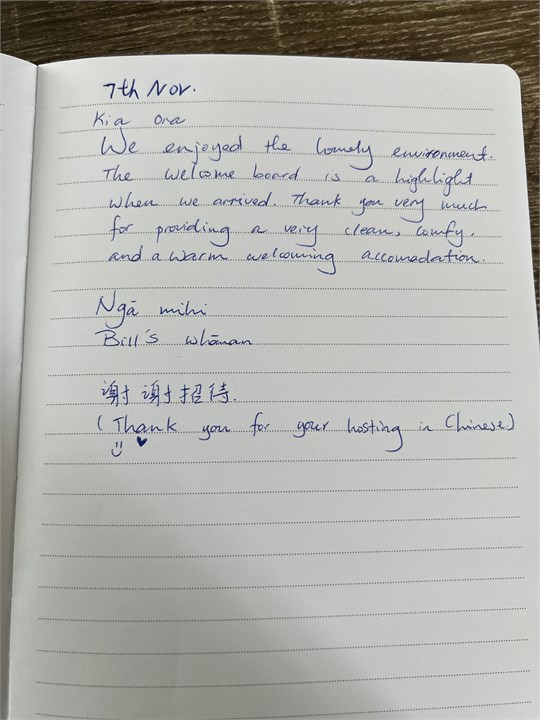 7th Nov.
Kia Ora
We enjoyed the homely environment.
The welcome board is a highlight
when we arrived. Thank you very much
for providing a very clean, comfy,
and a warm welcoming accomodation.
Ngā mihi
Bill's whānau
谢谢招待.
(Thank you for your hosting in Chinese)